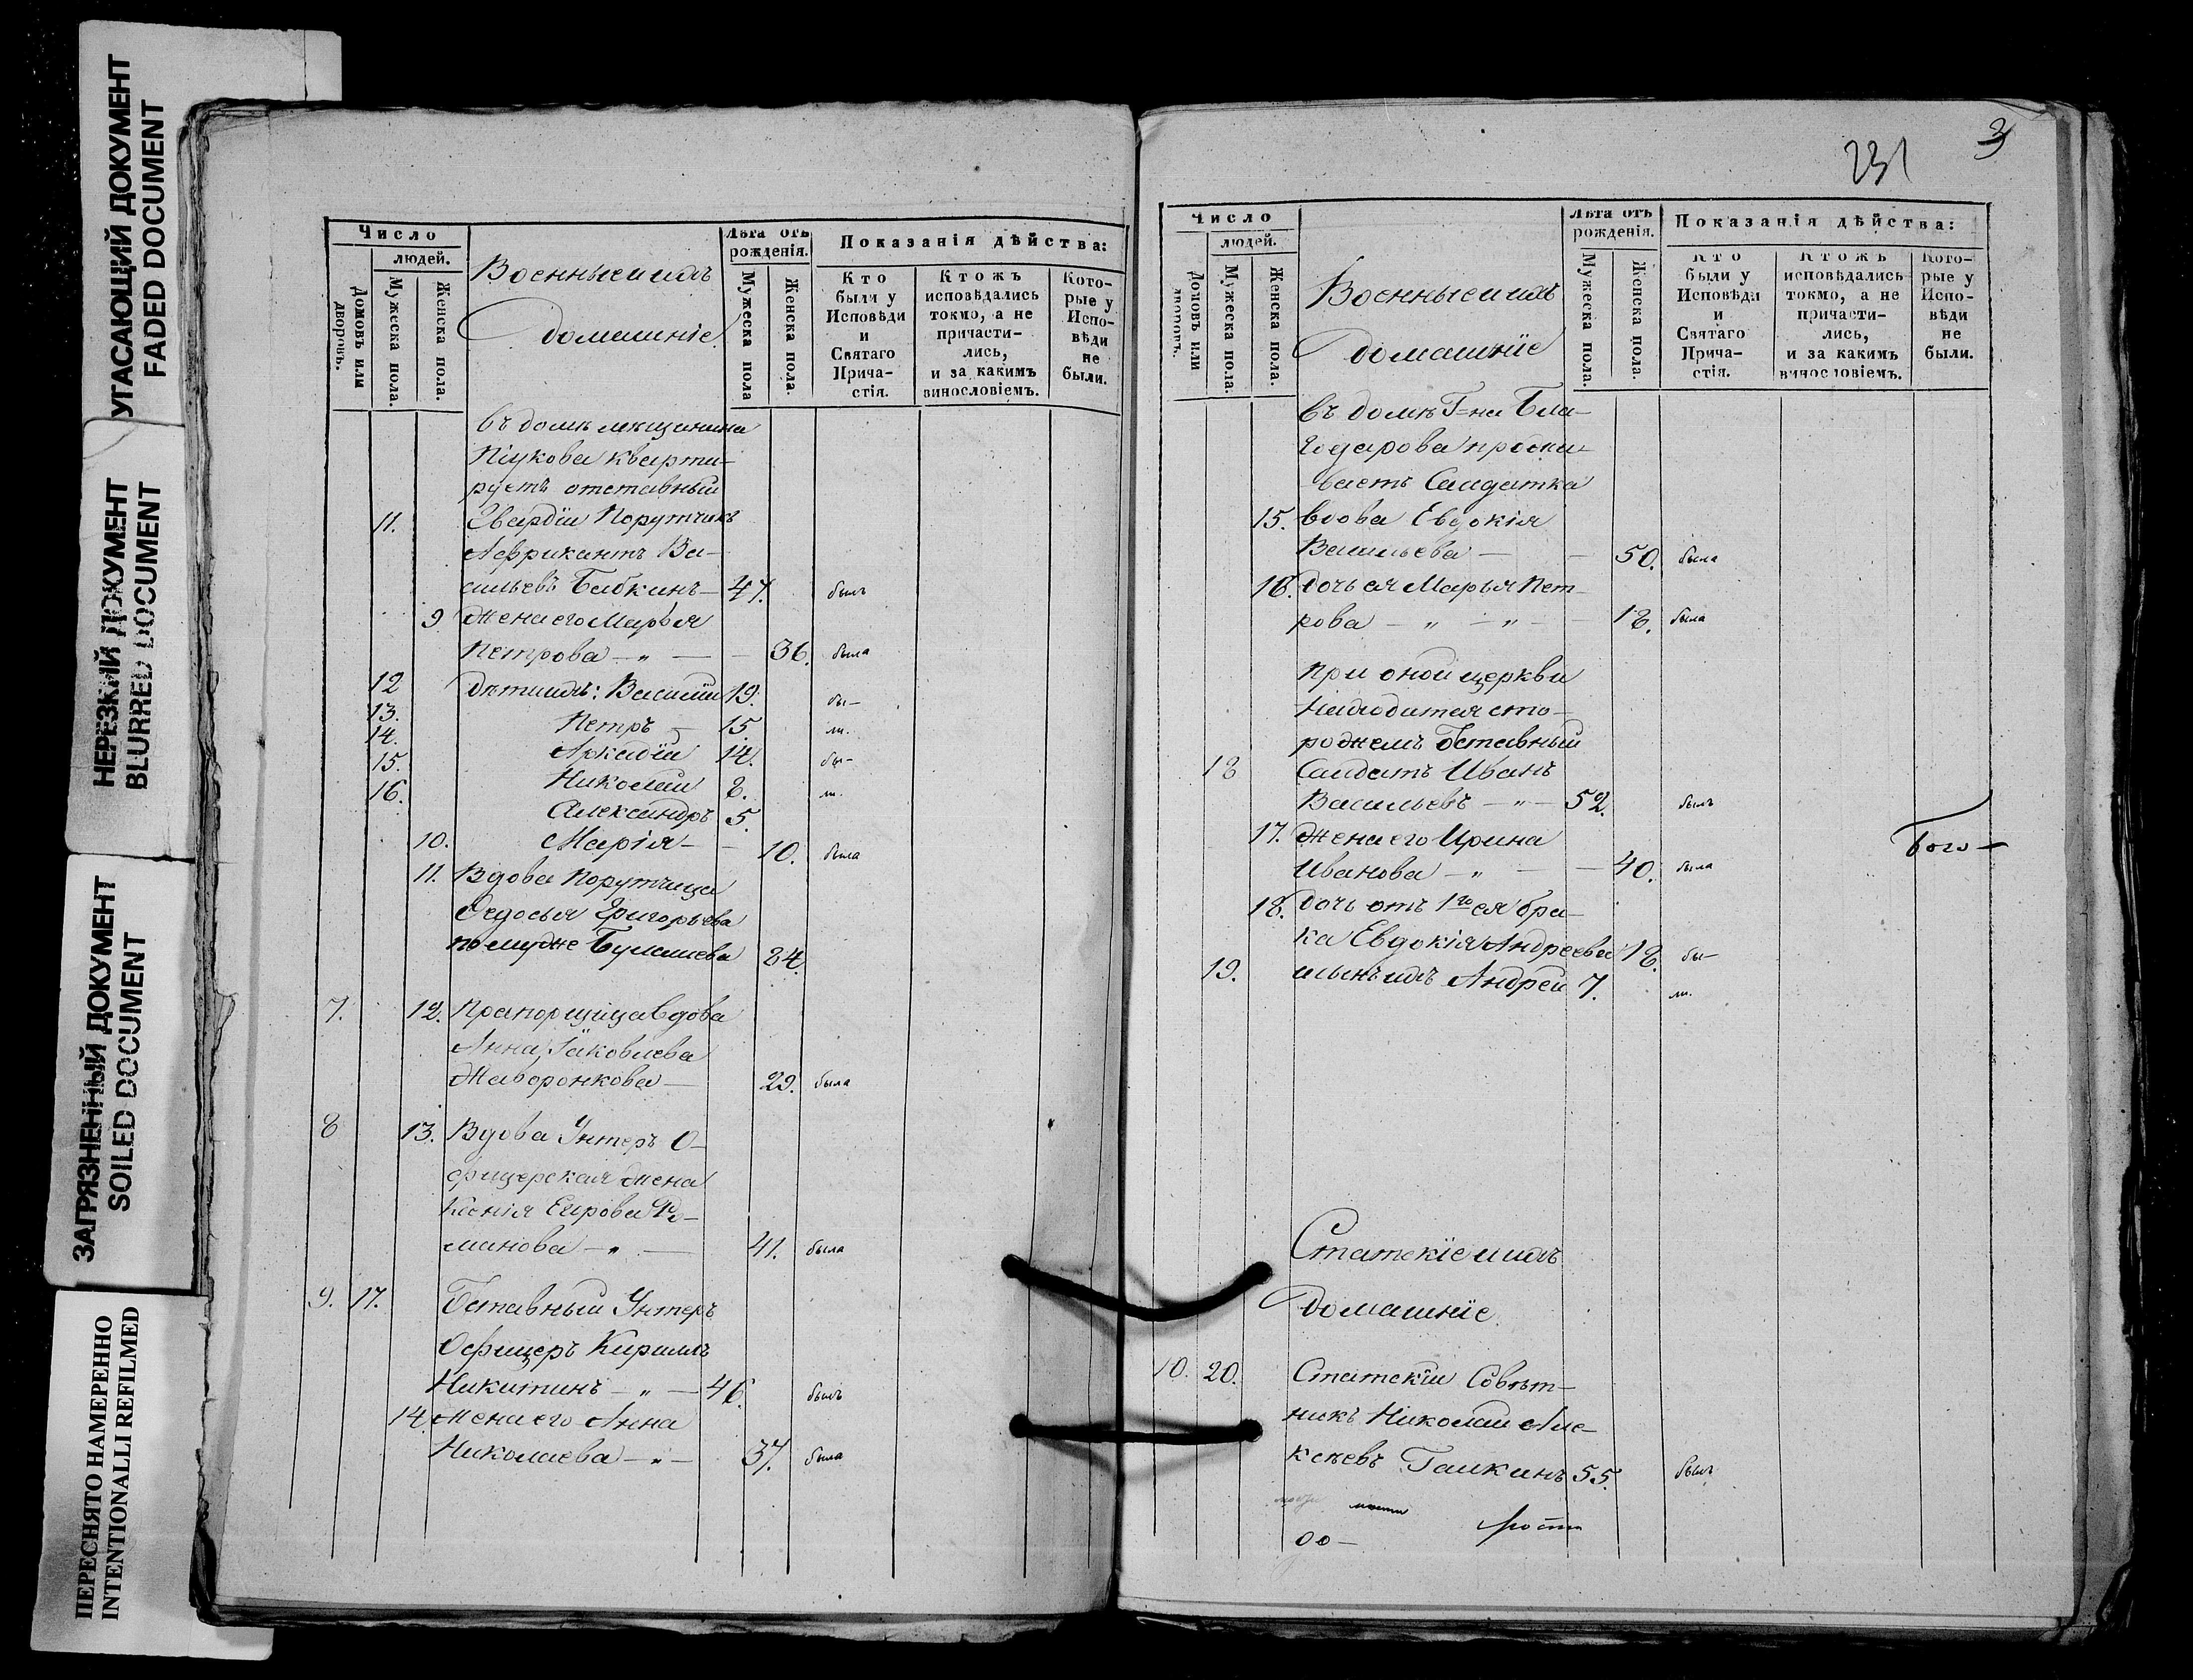 УГАСАЮЩИЙ ДОКУМЕНТ
FADED DOCUMENT
НЕРЕЗКИЙ ДОКУМЕНТ
BLURRED DOCUMENT
ЗАГРЯЗНЕННЫЙ ДОКУМЕНТ
SOILED DOCUMENT
ПЕРЕСНЯТО НАМЕРЕННО
INTENTIONALLI REFILMED
Число
людей.
Домовъ или дворовъ.
Мужеска пола.
Женска пола.
Военные и ихъ
домашніе.
Лѣта отъ рожденія.
Мужеска пола
Женска пола.
Показанія дѣйства:
Кто были у Исповѣди и Святаго Прича-стія.
Ктожъ исповѣдались токмо, а не причасти-лись, и за какимъ винословіемъ.
Кото-рые у Испо-вѣди не были.
въ домѣ мещанина
Піукова кварти-
руетъ отставный
11. Гвардіи Порутчикъ
Африкантъ Ва-
сильевъ Бабкинъ — 47. былъ
9 Жена его Марья
Петрова — „ — — 36. была
12 дѣти ихъ: Василій 19. бы-
13. Петръ — 15. ли.
14. Аркадій 14. бы-
15. Николай 8. ли.
16. Александръ 5.
10. Марія — — 10. была
11. Вдова Порутчица
Ѳедосья Григорьева
по мужѣ Булашева 84.
7. 12. Прапорщица вдова
Анна Іаковлева
Жаворонкова — 29. была
8 13. Вдова Унтеръ О-
фицерская жена
Ксенія Егорова Ѳо-
минова — „ — 41. была
9. 17. Отставный Унтеръ
Офицеръ Кириллъ
Никитинъ — „ — 46. былъ
14. Жена его Анна
Николаева — „ — 37. была
231
3
Число
людей.
Домовъ или дворовъ.
Мужеска пола.
Женска пола.
Военные и ихъ
домашніе
Лѣта отъ рожденія.
Мужеска пола.
Женска пола.
Показанія дѣйства:
Кто были у Исповѣди и Святаго Прича-стія.
Ктожъ исповѣдались токмо, а не причасти-лись, и за какимъ винословіемъ.
Кото-рые у Испо-вѣди не были.
въ домѣ Г=на Бла-
годарова прожи-
ваетъ Салдатка
15. вдова Евдокія
Васильева — — 50. была
16. дочь ея Марья Пет-
рова — „ — „ — — 18. была
при оной церкви
находится сто-
рожемъ Отставный
18 Салдатъ Иванъ
Васильевъ — „ — 52. былъ
17. Жена его Ирина
Иванова — „ — — 40. была
Бого-
18. дочь отъ 1го ея бра-
ка Евдокія Андреева 18. бы-
19. и сынъ ихъ Андрей 7. ли.
Статскіе и ихъ
домашніе.
10. 20. Статскій Совѣт-
никъ Николай Але-
ксѣевъ Галкинъ 55. былъ
до-